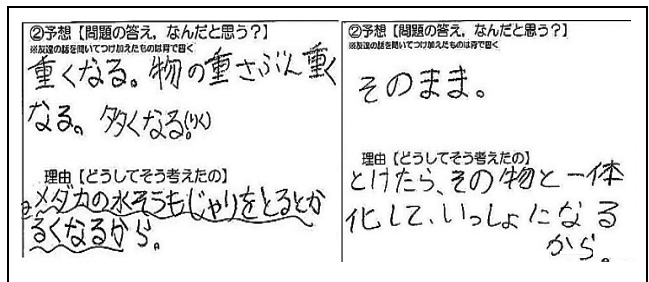 ②予想【問題の答え，なんだと思う？】
※友達の話を聞いてつけ加えたものは青で書く
重くなる。物の重さぶん重く
なる。多くなる!(りく)
理由【どうしてそう考えたの】
メダカの水そうもじゃりをとるとか
るくなるから。
②予想【問題の答え，なんだと思う？】
※友達の話を聞いてつけ加えたものは青で書く
そのまま。
理由【どうしてそう考えたの】
とけたら、その物と一体
化して、いっしょになる
から。